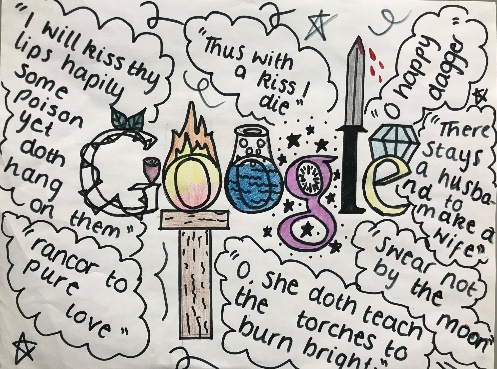 "I will kiss thy
lips hapily
some
poison
yet
doth
hang
on them"
"Thus with
a kiss I
die"
"O happy
dagger"
Google
"There
stays
a husba-
nd to
make a
wife"
"rancor to
pure
love"
"O she doth teach
the torches to
burn bright"
"swear not
by the
moon"